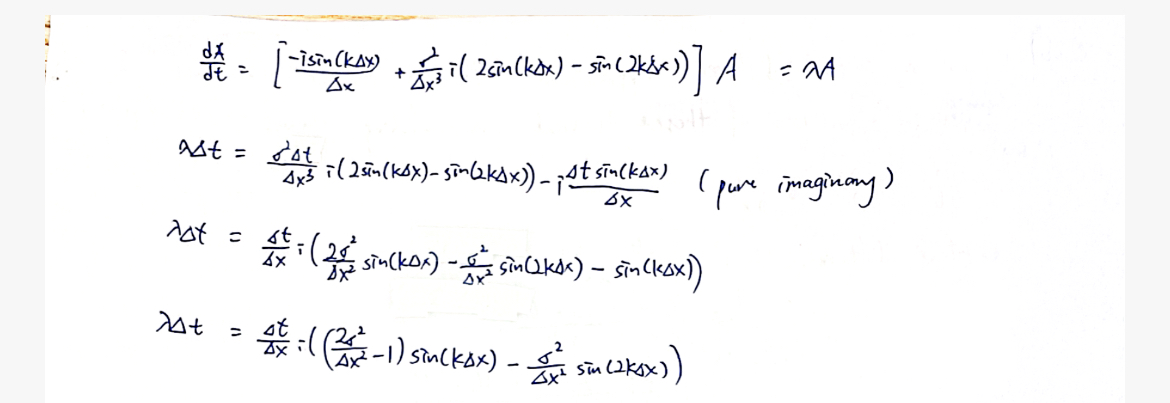 dA/dt = [ -i sin(kΔx)/Δx + δ²/Δx³ i( 2sin(kΔx) - sin(2kΔx)) ] A = λA
λΔt = δ²Δt/Δx³ i( 2sin(kΔx) - sin(2kΔx)) - i Δt sin(kΔx)/Δx ( pure imaginary )
λΔt = Δt/Δx i( 2δ²/Δx² sin(kΔx) - δ²/Δx² sin(2kΔx) - sin(kΔx))
λΔt = Δt/Δx i( (2δ²/Δx² - 1) sin(kΔx) - δ²/Δx² sin(2kΔx))